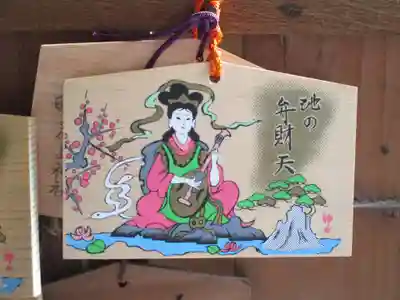 地の
弁財天